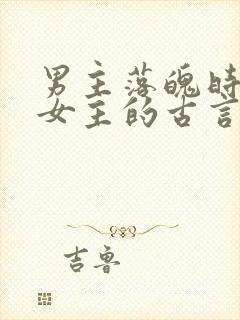 男主落魄时
女主的古言
吉鲁